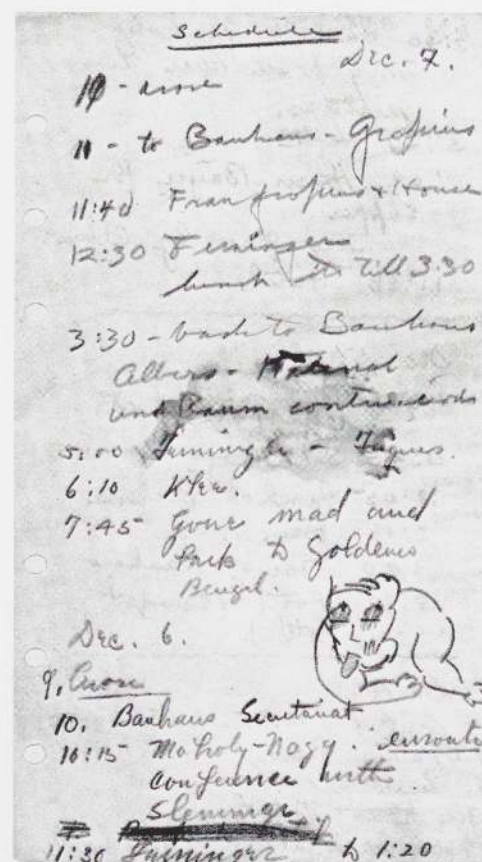 Schedule
Dec. 7.
10 - arose
11 - to Bauhaus - Gropius
11:40 Frau Gropius + House
12:30 Feininger
lunch till 3:30
3:30 - back to Bauhaus
Albers - Material
und Raum
5:00 Feininger - Fugues.
6:10 Klee.
7:45 Gone mad and
back to Goldenes
Beugel.
Dec. 6.
9. Arose
10. Bauhaus Secretariat
10:15 Moholy-Nagy. enroute
conference with
11:30 Feininger to 1:20